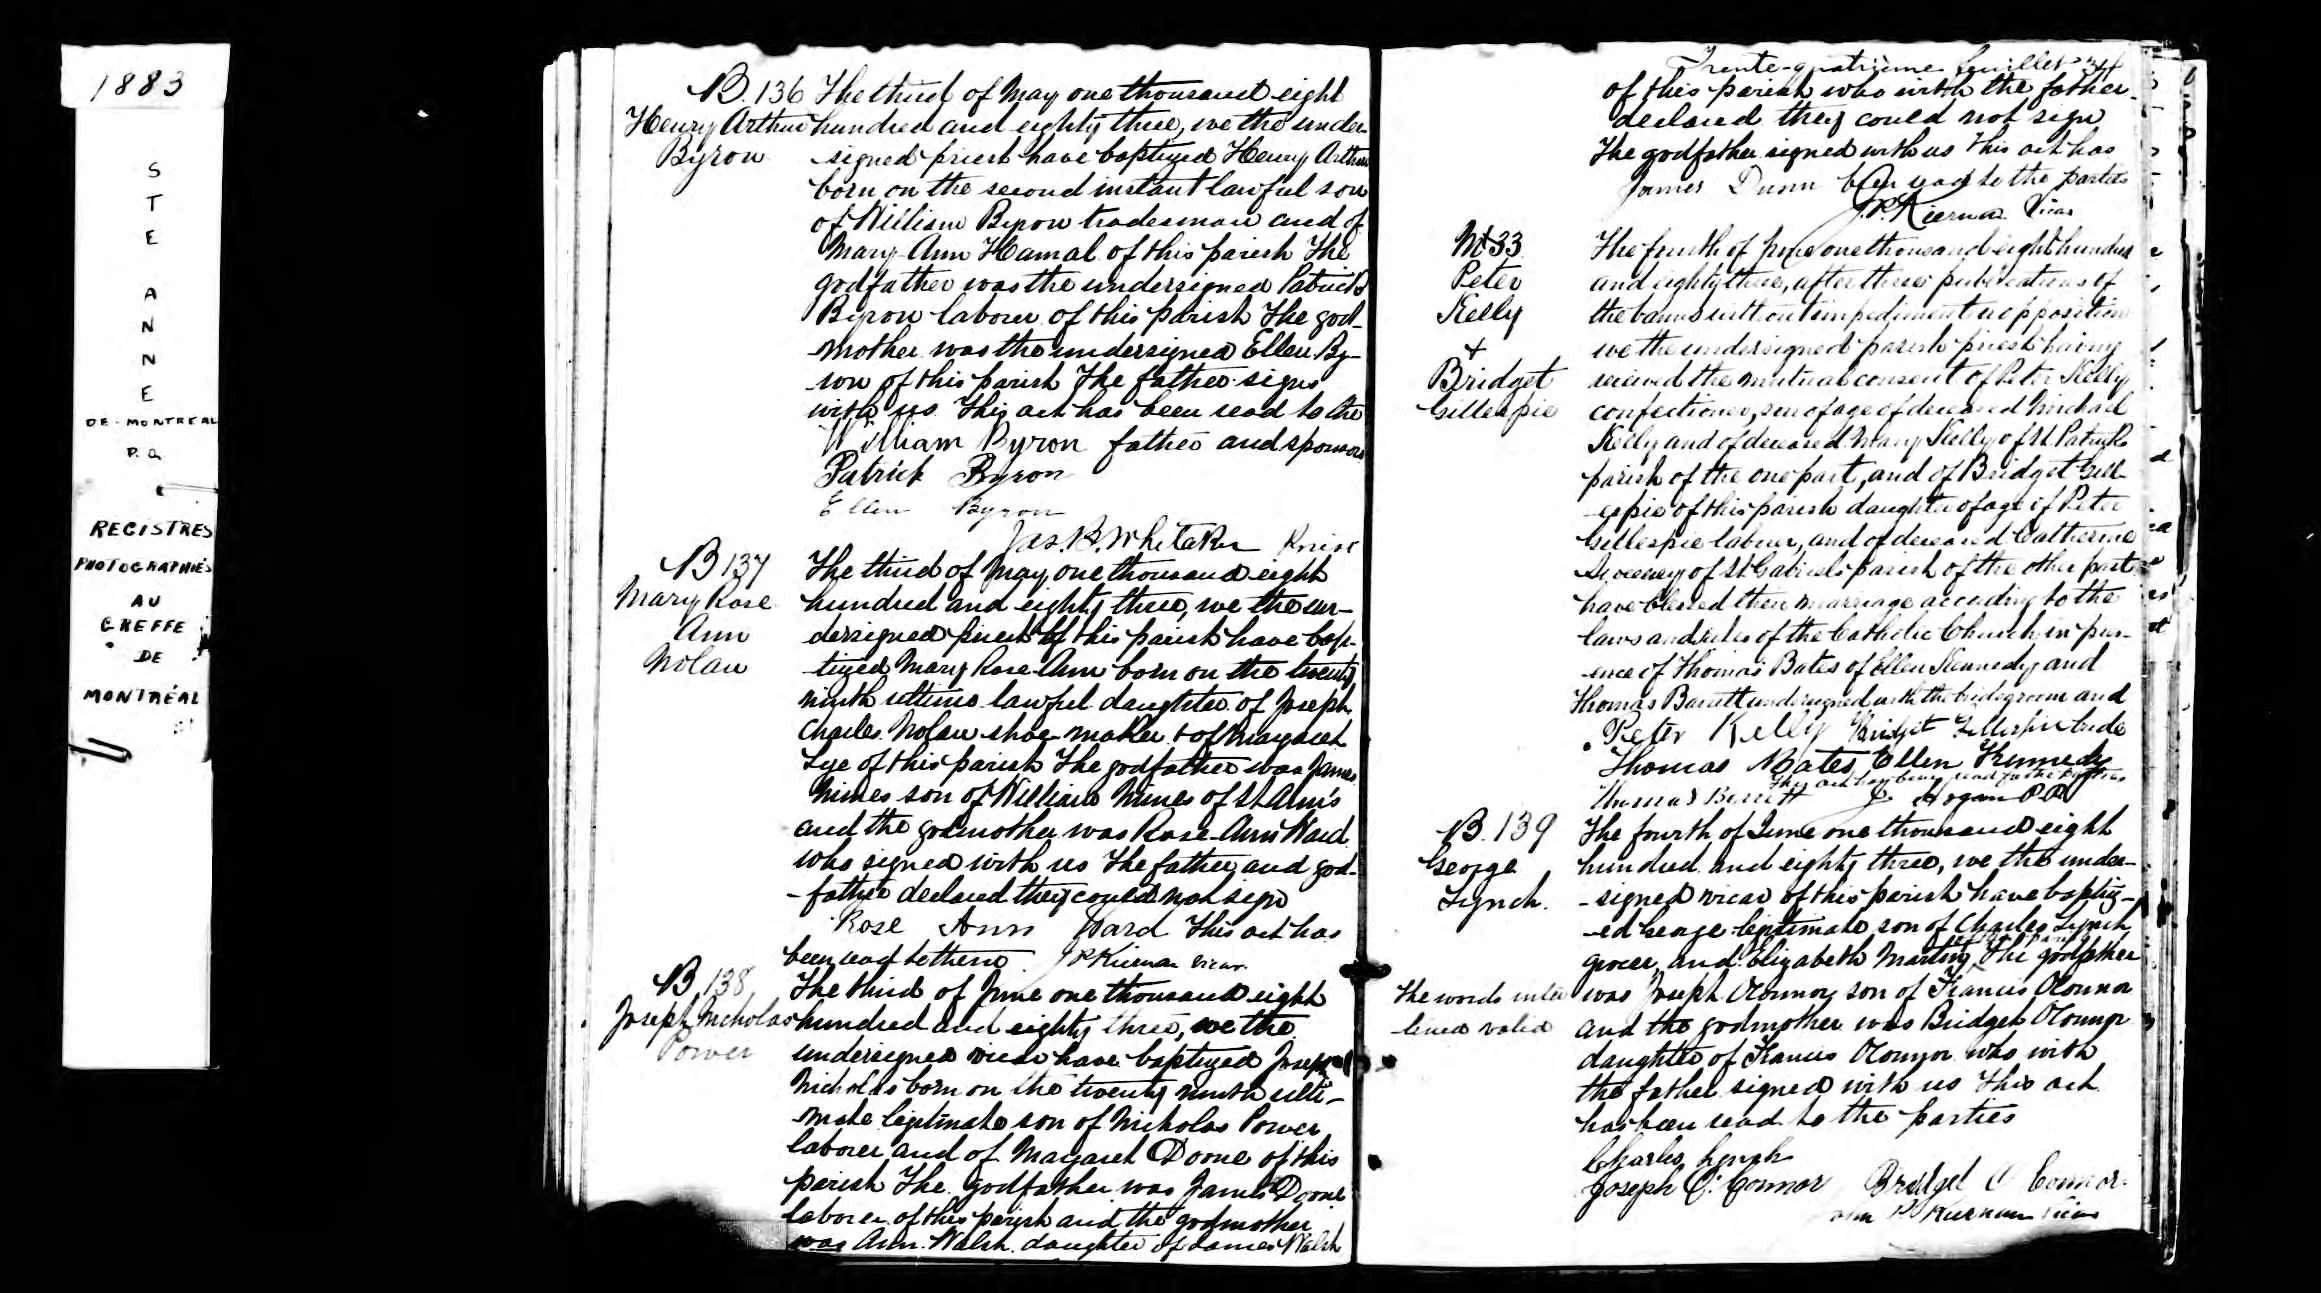 1883
STE ANNE
DE-MONTREAL
P.Q.
REGISTRES
PHOTOGRAPHIÉS
AU
GREFFE
DE
MONTRÉAL
B. 136 The third of May one thousand eight
Henry Arthur hundred and eighty three, we the under-
Byron signed priest have baptized Henry Arthur
born on the second instant lawful son
of William Byron tradesman and of
Mary Ann Hamal of this parish The
godfather was the undersigned Patrick
Byron laborer of this parish The god-
-mother was the undersigned Ellen By-
-ron of this parish The father signs
with us This act has been read to the
William Byron father and sponsors
Patrick Byron
Ellen Byron
Jas. B. Whitaker Priest
B 137 The third of May one thousand eight
Mary Rose hundred and eighty three, we the un-
Ann dersigned priest of this parish have bap-
Nolan -tized Mary Rose Ann born on the twenty
ninth ultimo lawful daughter of Joseph
Charles Nolan shoe maker & of Margaret
Lye of this parish The godfather was James
Nimes son of William Nimes of St Ann's
and the godmother was Rose Ann Ward
who signed with us The father and god-
-father declared they could not sign
Rose Ann Ward This act has
been read to them JP Kiernan vicar
B. 138 The third of June one thousand eight
Joseph Nicholas hundred and eighty three, we the
Power undersigned vicar have baptized Joseph
Nicholas born on the twenty ninth ulti-
-mate legitimate son of Nicholas Power
laborer and of Margaret Doone of this
parish The godfather was James Doone
laborer of this parish and the godmother
was Ann Walsh daughter of James Walsh
Trente-quatrième feuillet 34
of this parish who with the father
declared they could not sign
The godfather signed with us This act has
James Dunn been read to the parties
J.P. Kiernan Vicar
M 33 The fourth of June one thousand eight hundred
Peter and eighty three, after three publications of
Kelly the banns without impediment or opposition
+ we the undersigned parish priest having
Bridget received the mutual consent of Peter Kelly
Gillespie confectioner, son of age of deceased Michael
Kelly and of deceased Mary Kelly of St Patrick's
parish of the one part, and of Bridget Gill-
-espie of this parish daughter of age of Peter
Gillespie laborer, and of deceased Catherine
Sweeney of St Gabriel's parish of the other part
have blessed their marriage according to the
laws and rites of the Catholic Church in pres-
-ence of Thomas Bates of Ellen Kennedy and
Thomas Barrett undersigned with the bridegroom and
Peter Kelly Bridget Gillespie bride
Thomas Bates Ellen Kennedy
This act has been read to the parties
Thomas Barrett J Hogan P.P.
B. 139 The fourth of June one thousand eight
George hundred and eighty three, we the under-
Lynch. -signed vicar of this parish have baptiz-
-ed George legitimate son of Charles Lynch
grocer, and Elizabeth Martin, The godfather
The words inter was Joseph OConnor son of Francis OConnor
lined valid and the godmother was Bridget OConnor
daughter of Francis OConnor who with
the father signed with us This act
has been read to the parties
Charles Lynch
Joseph O'Connor Bridget O Connor
John P Kiernan Vicar